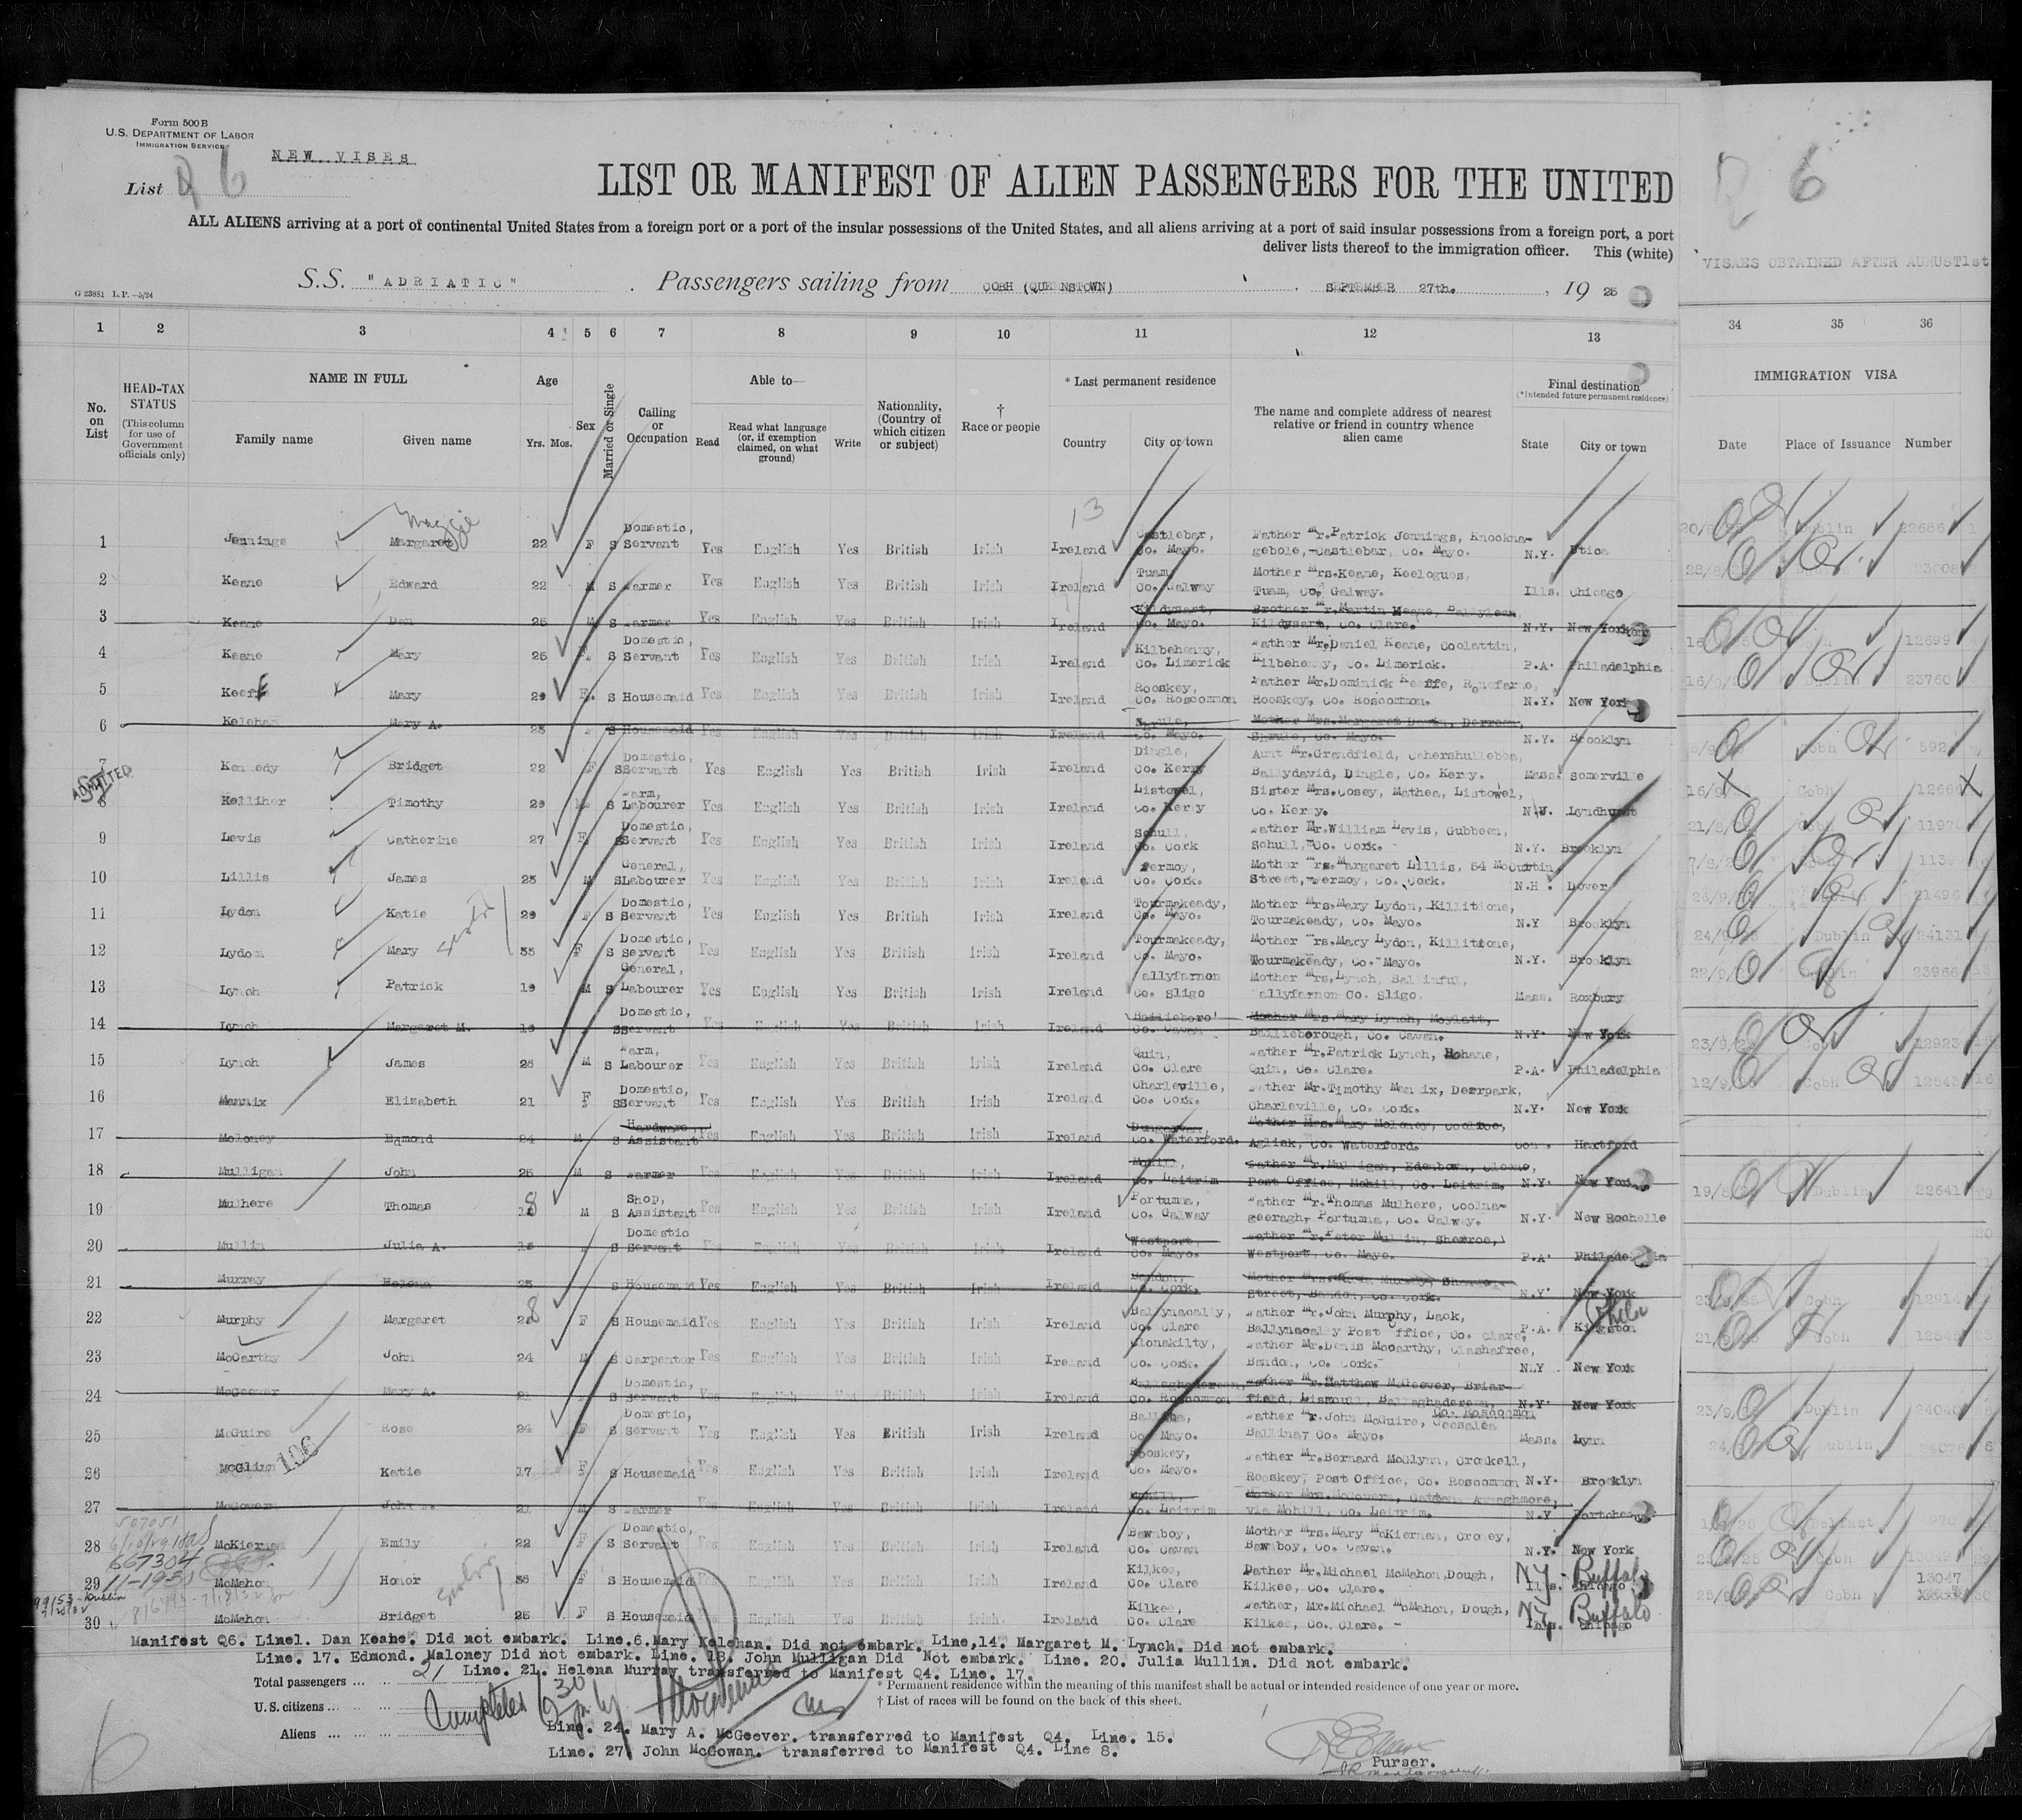 Form 500 B
U.S. DEPARTMENT OF LABOR
IMMIGRATION SERVICE
NEW VISES
List Q 6
Q 6
LIST OR MANIFEST OF ALIEN PASSENGERS FOR THE UNITED
ALL ALIENS arriving at a port of continental United States from a foreign port or a port of the insular possessions of the United States, and all aliens arriving at a port of said insular possessions from a foreign port, a port
deliver lists thereof to the immigration officer. This (white)
VISAES OBTAINED AFTER AUGUST 1st
S.S. "ADRIATIC" Passengers sailing from COBH (QUEENSTOWN) SEPTEMBER 27th. , 19 25
G 23881 L.P.-5/24
1 2 3 4 5 6 7 8 9 10 11 12 13 34 35 36
No. on List
HEAD-TAX STATUS
(This column for use of Government officials only)
NAME IN FULL
Family name Given name
Age
Yrs. Mos.
Sex
Married or Single
Calling or Occupation
Able to—
Read Read what language (or, if exemption claimed, on what ground) Write
Nationality, (Country of which citizen or subject)
† Race or people
* Last permanent residence
Country City or town
The name and complete address of nearest relative or friend in country whence alien came
Final destination
(*Intended future permanent residence)
State City or town
IMMIGRATION VISA
Date Place of Issuance Number
13
Maggie
1 Jennings Margaret 22 F S Domestic, Servant Yes English Yes British Irish Ireland Castlebar, Co. Mayo. Father Mr. Patrick Jennings, Knockna-gebole, Castlebar, Co. Mayo. N.Y. Utica Dublin
2 Keane Edward 22 M S Farmer Yes English Yes British Irish Ireland Tuam, Co. Galway Mother Mrs. Keane, Keelogues, Tuam, Co. Galway. Ills. Chicago
3 Keane Dan 25 M S Farmer Yes English Yes British Irish Ireland Kildysart, Co. Mayo. Brother Mr. Martin Keane, Kildysart, Co. Clare. N.Y. New York
4 Keane Mary 25 F S Domestic, Servant Yes English Yes British Irish Ireland Kilbehenny, Co. Limerick Father Mr. Daniel Keane, Coolattin, Kilbehenny, Co. Limerick. P.A. Philadelphia 12699
5 Keeffe Mary 29 F. S Housemaid Yes English Yes British Irish Ireland Rooskey, Co. Roscommon Father Mr. Dominick Keeffe, Rooskey, Co. Roscommon. N.Y. New York 23760
6 Kelehan Mary A. 25 S Housemaid Yes English Yes British Irish Ireland Shrule, Co. Mayo. Mother Mrs. Margaret Shrule, Co. Mayo. N.Y. Brooklyn
7 Kennedy Bridget 22 F S Domestic, Servant Yes English Yes British Irish Ireland Dingle, Co. Kerry Aunt Mr. Grandfield, Ballydavid, Dingle, Co. Kerry. Mass. Somerville Cobh
ADMITTED
8 Kelliher Timothy 29 M S Farm, Labourer Yes English Yes British Irish Ireland Listowel, Co. Kerry Sister Mrs. Cosey, Mathea, Listowel, Co. Kerry. N.J. Lyndhurst Cobh 12666
9 Levis Catherine 27 F S Domestic, Servant Yes English Yes British Irish Ireland Schull, Co. Cork Father Mr. William Levis, Gubbeen, Schull, Co. Cork. N.Y. Brooklyn
10 Lillis James 25 M S General, Labourer Yes English Yes British Irish Ireland Fermoy, Co. Cork. Mother Mrs. Margaret Lillis, 54 McCurtin Street, Fermoy, Co. Cork. N.H. Dover
11 Lydon Katie 29 F S Domestic, Servant Yes English Yes British Irish Ireland Tourmakeady, Co. Mayo. Mother Mrs. Mary Lydon, Killitione, Tourmakeady, Co. Mayo. N.Y Brooklyn
sister
12 Lydon Mary 35 F S Domestic, Servant Yes English Yes British Irish Ireland Tourmakeady, Co. Mayo. Mother Mrs. Mary Lydon, Killitione, Tourmakeady, Co. Mayo. N.Y. Brooklyn Dublin 24131
13 Lynch Patrick 19 M S General, Labourer Yes English Yes British Irish Ireland Ballyfarnon Co. Sligo Mother Mrs. Lynch, Ballinful, Ballyfarnon Co. Sligo. Mass. Roxbury 23966
14 Lynch Margaret M. 19 S Domestic, Servant Yes English Yes British Irish Ireland Bailieboro' Co. Cavan Mother Mrs. Mary Lynch, Moylett, Bailieborough, Co. Cavan. N.Y. New York
15 Lynch James 25 M S Farm, Labourer Yes English Yes British Irish Ireland Quin, Co. Clare Father Mr. Patrick Lynch, Hohane, Quin, Co. Clare. P.A. Philadelphia 12923
16 Mannix Elizabeth 21 F S Domestic, Servant Yes English Yes British Irish Ireland Charleville, Co. Cork. Father Mr. Timothy Mannix, Deerpark, Charleville, Co. Cork. N.Y. New York Cobh 12543
17 Moloney Edmond 24 M S Hardware, Assistant Yes English Yes British Irish Ireland Dungarvan, Co. Waterford. Mother Mrs. Mary Moloney, Aglish, Co. Waterford. Conn. Hartford
18 Mulligan John 25 M S Farmer Yes English Yes British Irish Ireland Mohill, Co. Leitrim Father Mr. Mulligan, Edenbown, Post Office, Mohill, Co. Leitrim. N.Y. New York
19 Mulhere Thomas 18 M S Shop, Assistant Yes English Yes British Irish Ireland Portumna, Co. Galway Father Mr. Thomas Mulhere, Coolna-geeragh, Portumna, Co. Galway. N.Y. New Rochelle Dublin 22641
20 Mullin Julia A. S Domestic Servant Yes English Yes British Irish Ireland Westport, Co. Mayo. Father Mr. Peter Mullin, Shexroe, Westport, Co. Mayo. P.A. Philadelphia
21 Murray Helena 25 S Housemaid Yes English Yes British Irish Ireland Bandon, Co. Cork. Mother Mrs. Murray, Street, Bandon, Co. Cork. N.Y. New York
22 Murphy Margaret 28 F S Housemaid Yes English Yes British Irish Ireland Ballynacally, Co. Clare Father Mr. John Murphy, Lack, Ballynacally Post Office, Co. Clare. P.A. Kingston Phila Cobh 12914
23 McCarthy John 24 M S Carpenter Yes English Yes British Irish Ireland Clonakilty, Co. Cork. Father Mr. Denis McCarthy, Clashafree, Bandon, Co. Cork. N.Y New York Cobh
24 McGeever Mary A. S Domestic, Servant Yes English Yes British Irish Ireland Ballaghadereen, Co. Roscommon Father Mr. Matthew McGeever, Briar-field, Lismoull, Ballaghadereen, Co. Roscommon N.Y. New York
25 McGuire Rose 24 F S Domestic, Servant Yes English Yes British Irish Ireland Ballina, Co. Mayo. Father Mr. John McGuire, Ballina, Co. Mayo. Mass. Lynn Dublin
106
26 McGlinn Katie 17 F S Housemaid Yes English Yes British Irish Ireland Rooskey, Co. Mayo. Father Mr. Bernard McGlynn, Cronkell, Rooskey, Post Office, Co. Roscommon N.Y. Brooklyn Dublin
27 McGovern John 21 M S Farmer Yes English Yes British Irish Ireland Mohill, Co. Leitrim Mother Mrs. McGovern, via Mohill, Co. Leitrim. N.Y Portchester
507051
28 McKiernan Emily 22 F S Domestic, Servant Yes English Yes British Irish Ireland Bawnboy, Co. Cavan Mother Mrs. Mary McKiernan, Croney, Bawnboy, Co. Cavan. N.Y. New York Belfast
667304
11-1930
29 McMahon Honor 36 F S Housemaid Yes English Yes British Irish Ireland Kilkee, Co. Clare Father Mr. Michael McMahon, Dough, Kilkee, Co. Clare. Ills. Chicago NY - Buffalo
sister
30 McMahon Bridget 25 F S Housemaid Yes English Yes British Irish Ireland Kilkee, Co. Clare Father, Mr. Michael McMahon, Dough, Kilkee, Co. Clare. Ills. Chicago NY Buffalo Cobh 13047
Manifest Q6. Line1. Dan Keane. Did not embark. Line.6. Mary Kelehan. Did not embark. Line,14. Margaret M. Lynch. Did not embark.
Line. 17. Edmond. Maloney Did not embark. Line. 18. John Mulligan Did Not embark. Line. 20. Julia Mullin. Did not embark.
Total passengers ... 21 Line. 21. Helena Murray transferred to Manifest Q4. Line. 17.
* Permanent residence within the meaning of this manifest shall be actual or intended residence of one year or more.
U.S. citizens...
† List of races will be found on the back of this sheet.
Completed
Aliens ...
Line. 24. Mary A. McGeever. transferred to Manifest Q4. Line. 15.
Line. 27. John McGowan. transferred to Manifest Q4. Line 8.
Purser.
6